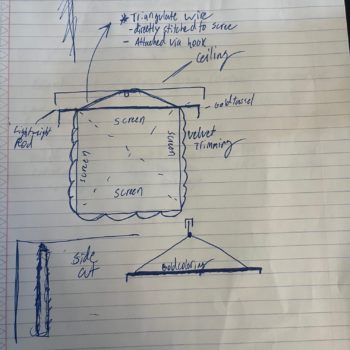 * Triangulate wire
- directly stitched to scree
- Attached via hook
Ceiling
Gold tassel
Lightweight
Rod
screen
screen
screen
Velvet
Trimming
screen
Side
cut
Gold coloring